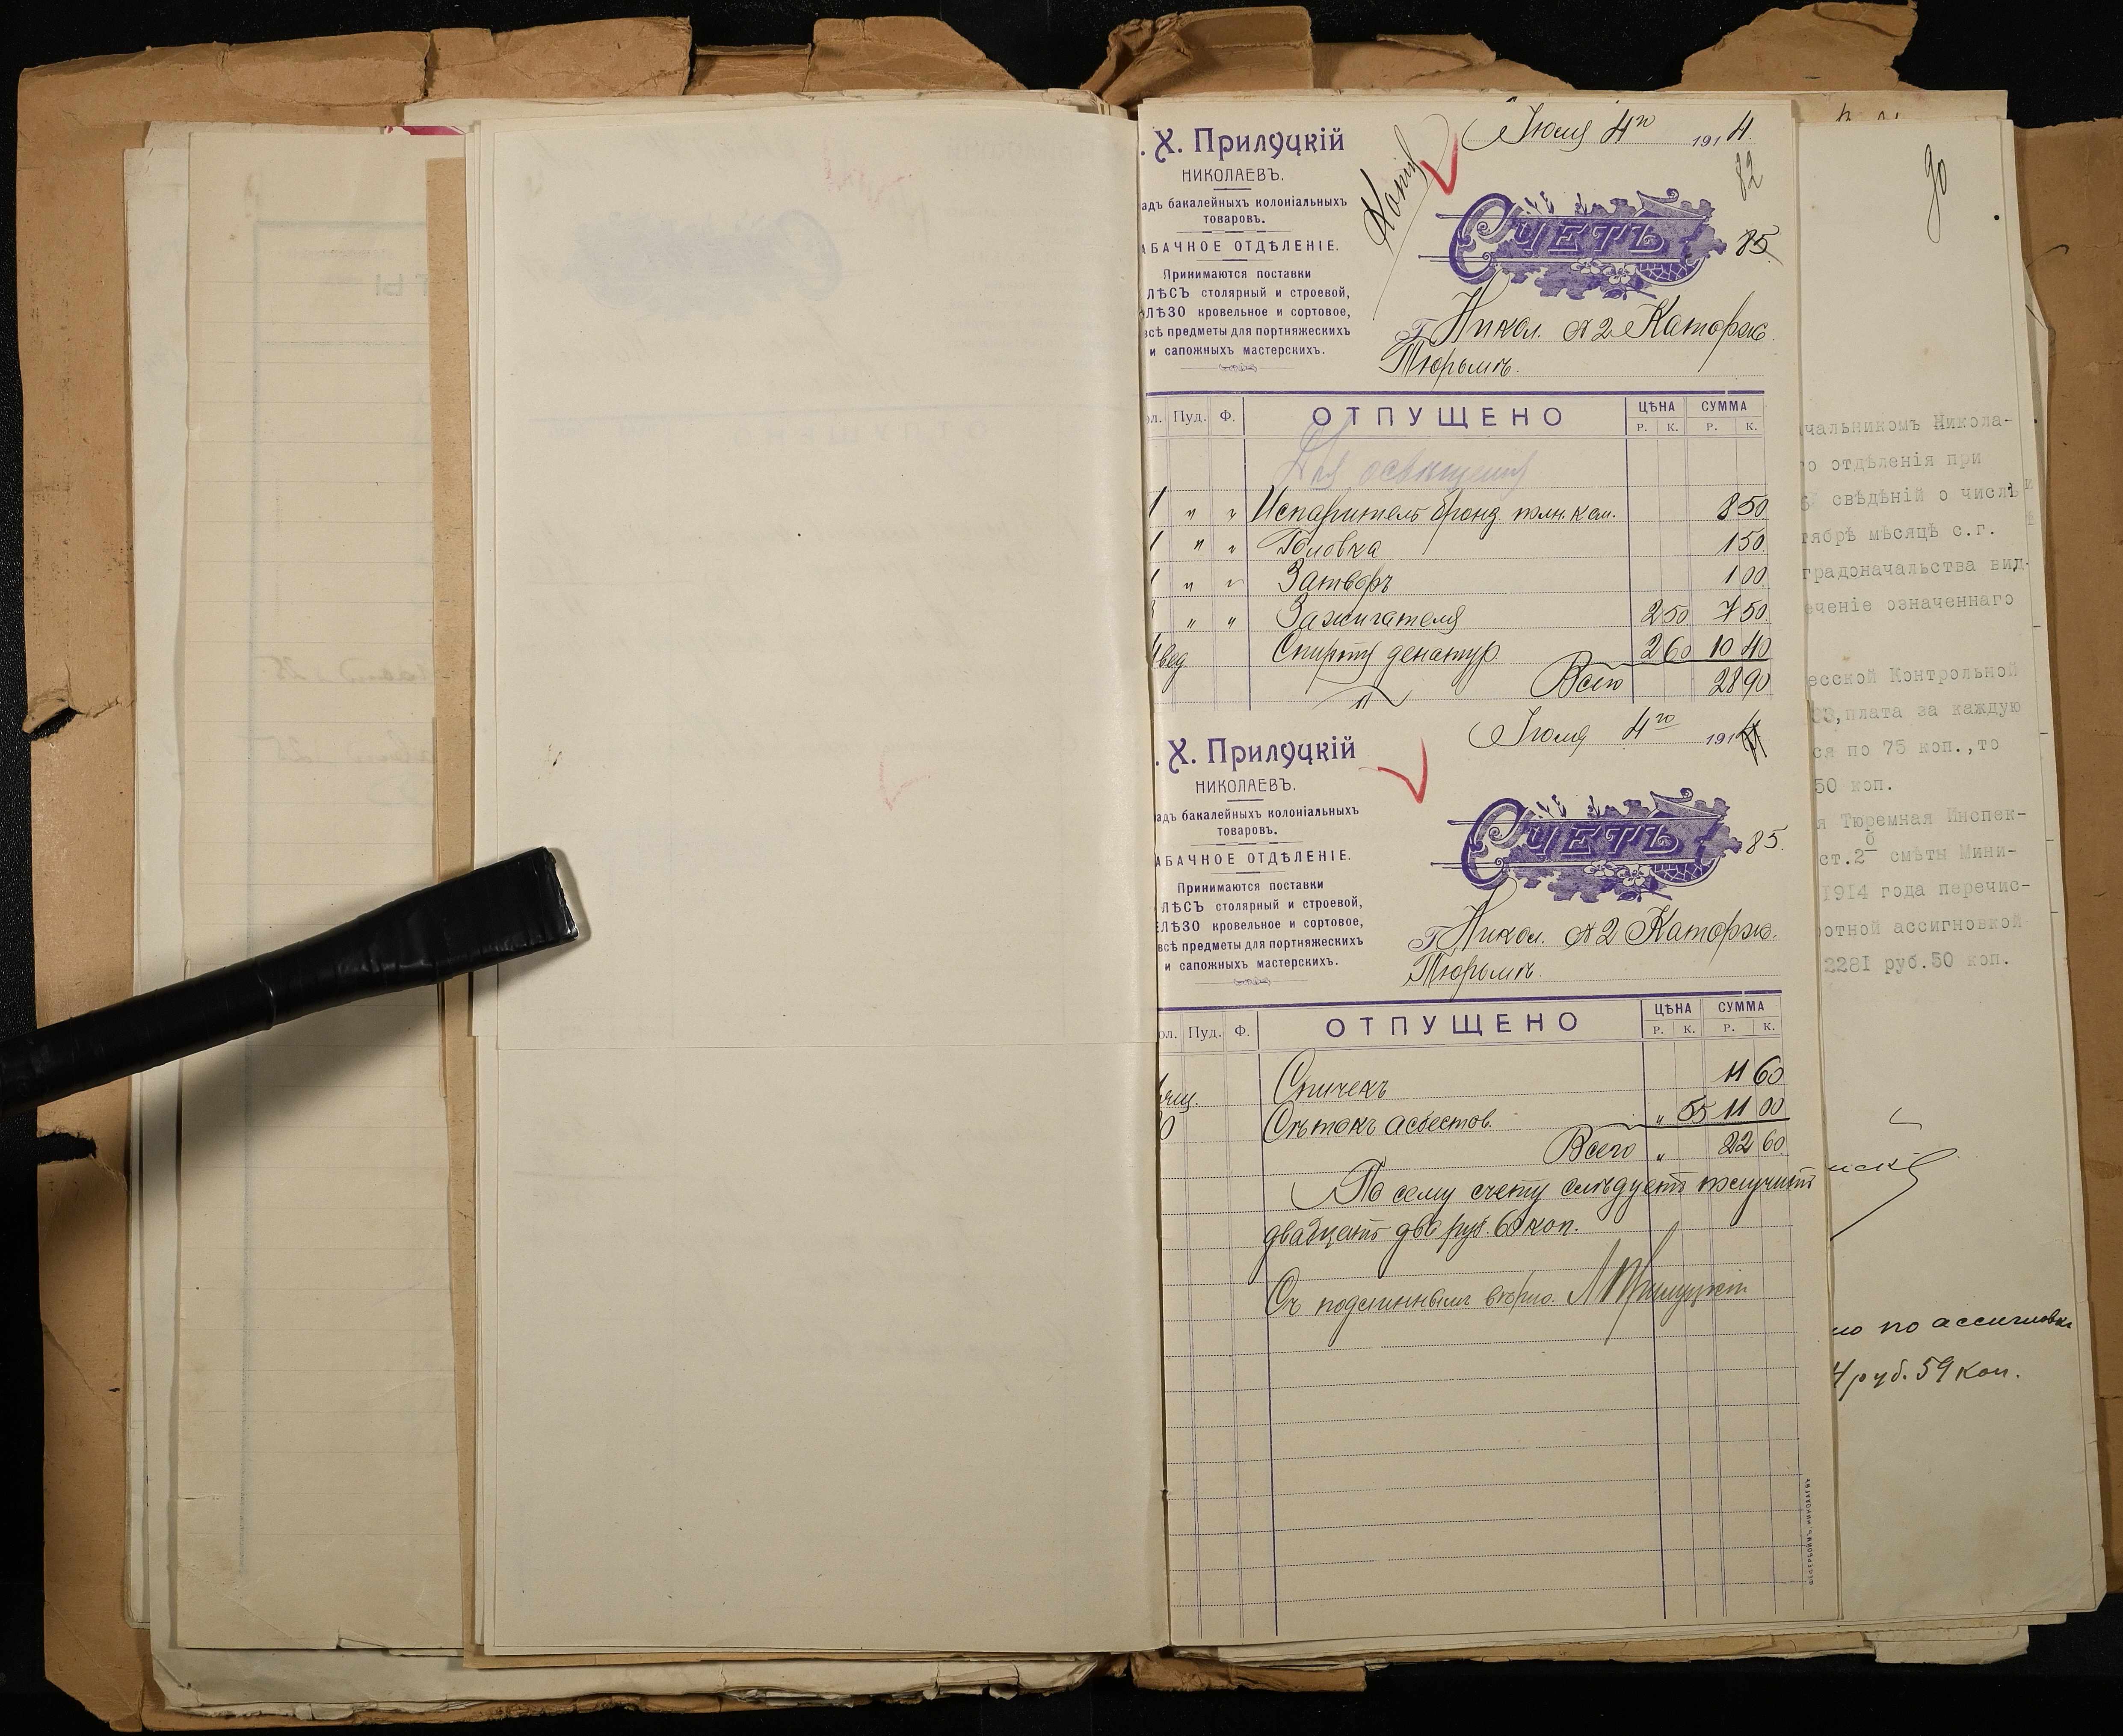 Іюля 4го 1914
. Х. Прилуцкій
НИКОЛАЕВЪ.
Копія
82
адъ бакалейныхъ колоніальныхъ
товаровъ.
АБАЧНОЕ ОТДѢЛЕНІЕ.
Принимаются поставки
ЛѢСЪ столярный и строевой,
ЛѢЗО кровельное и сортовое,
всѣ предметы для портняжескихъ
и сапожныхъ мастерскихъ.
СЧЕТЪ 85
Г. Никол. № 2 Каторж.
Тюрьмѣ.
ол. Пуд. Ф. ОТПУЩЕНО ЦѢНА СУММА
Р. К. Р. К.
Для освѣщенія
1 " " Испаритель бронз. 8 50
1 " " Головка 1 50
1 " " Затворъ 1 00
" " Зажигателя 2 50 7 50
вед Спирту денатур. 2 60 10 40
Всего 28 90
Іюля 4го 1914
. Х. Прилуцкій
НИКОЛАЕВЪ.
адъ бакалейныхъ колоніальныхъ
товаровъ.
АБАЧНОЕ ОТДѢЛЕНІЕ.
Принимаются поставки
ЛѢСЪ столярный и строевой,
ЕЛѢЗО кровельное и сортовое,
всѣ предметы для портняжескихъ
и сапожныхъ мастерскихъ.
СЧЕТЪ 85.
Г. Никол. № 2 Каторж.
Тюрьмѣ.
ол. Пуд. Ф. ОТПУЩЕНО ЦѢНА СУММА
Р. К. Р. К.
ящ. Спичекъ 11 60
0 Сѣтокъ асбестов. " 55 11 00
Всего " 22 60
По сему счету слѣдуетъ получить
двадцать два руб. 60 коп.
Съ подлиннымъ вѣрно. Прилуцкій
90
чальникомъ Никола-
го отдѣленія при
свѣдѣній о числѣ
тябрѣ мѣсяцѣ с.г.
градоначальства вид-
еченіе означеннаго
есской Контрольной
плата за каждую
ся по 75 коп.,то
50 коп.
я Тюремная Инспек-
ст.2б смѣты Мини-
1914 года перечис-
отной ассигновкой
2281 руб.50 коп.
но по ассигновкѣ
4 руб. 59 коп.